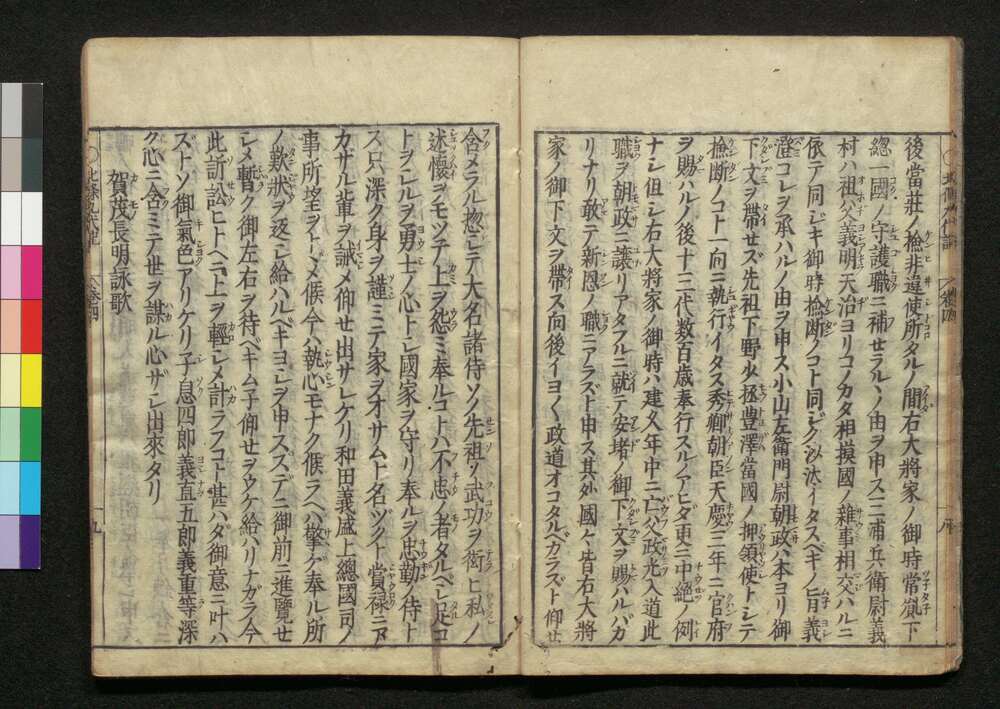 後當莊ノ檢非違使所タルノ間右大將家ノ御時常胤下
總一國ノ守護職ニ補セラルヽノ由ヲ申ス三浦兵衛尉義
村ハ祖父義明天治ヨリコノカタ相摸國ノ雜事相交ハルニ
依テ同ジキ御時檢斷ノコト同ジク沙汰イタスベキノ旨義
澄コレヲ承ハルノ由ヲ申ス小山左衞門尉朝政ハ本ヨリ御
下文ヲ帶セズ先祖下野少掾豊澤當國ノ押領使トシテ
檢斷ノコト一向ニ執行イタス秀郷朝臣天慶三年ニ官府
ヲ賜ハルノ後十三代数百歳奉行スルノアヒダ更ニ中絶ノ例
ナシ但シ右大將家ノ御時ハ建久年中ニ亡父政光入道此
職ヲ朝政ニ讓リアタフルニ就テ安堵ノ御下文ヲ賜ハルバカ
リナリ敢テ新恩ノ職ニアラズト申ス其外國々皆右大將
家ノ御下文ヲ帶ス向後イヨ〱政道オコタルベカラズト仰せ
含メラル惣シテ大名諸侍ソノ先祖ノ武功ヲ衒ヒ私ノ
述懷ヲモツテ上ヲ怨ミ奉ルコトハ不忠ノ者タルベシ足コ
トヲシルヲ勇士ノ心トシ國家ヲ守リ奉ルヲ忠勤ノ侍ト
ス只深ク身ヲ謹ミテ家ヲオサムト名ツク賞禄ニア
カザル輩ヲ誡メ仰せ出サレケリ和田義盛上總國司ノ
事所望ヲトヾメ候今ハ執心モナク候ラヘバ擎ゲ奉ル所
ノ歎狀ヲ返シ給ハルベキヨシヲ申スズデニ御前ニ進覽せ
シメ暫ク御左右ヲ待ベキム子仰せヲウケ給ハリナガラ今
此訴訟ヒトヘニ上ヲ輕シメ計ラフコト甚ハダ御意ニ叶ハ
ズトソ御氣色アリケリ子息四郎義直五郎義重等深
ク心ニ含ミテ世ヲ謀ル心ザシ出來タリ
賀茂長明詠歌
十九